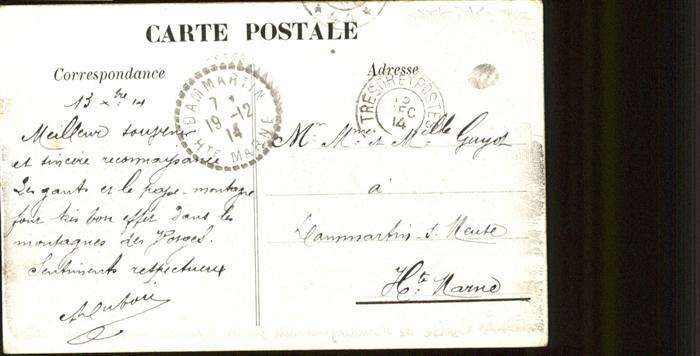 CARTE POSTALE
Correspondance
13 Xbre 14
Meilleur souvenir
et sincère reconnaissance
Les gants et le passe-montagne
font très bon effet dans les
montagnes des Vosges.
Sentiments respectueux
ADubois
DAMMARTIN
7
19-12
14
HTE MARNE
Adresse
TRESOR ET POSTES
14
Mr Mme et Melle Guyot
à
Dammartin s. Meuse
Hte Marne